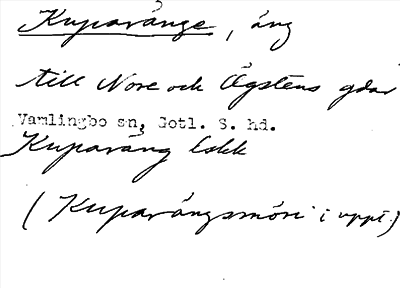 Kuparänge, äng
till Nore och Ägstens gdar
Vamlingbo sn, Gotl. S. hd.
Kuparäng Lskk
(Kuparängsmöri i uppt.)